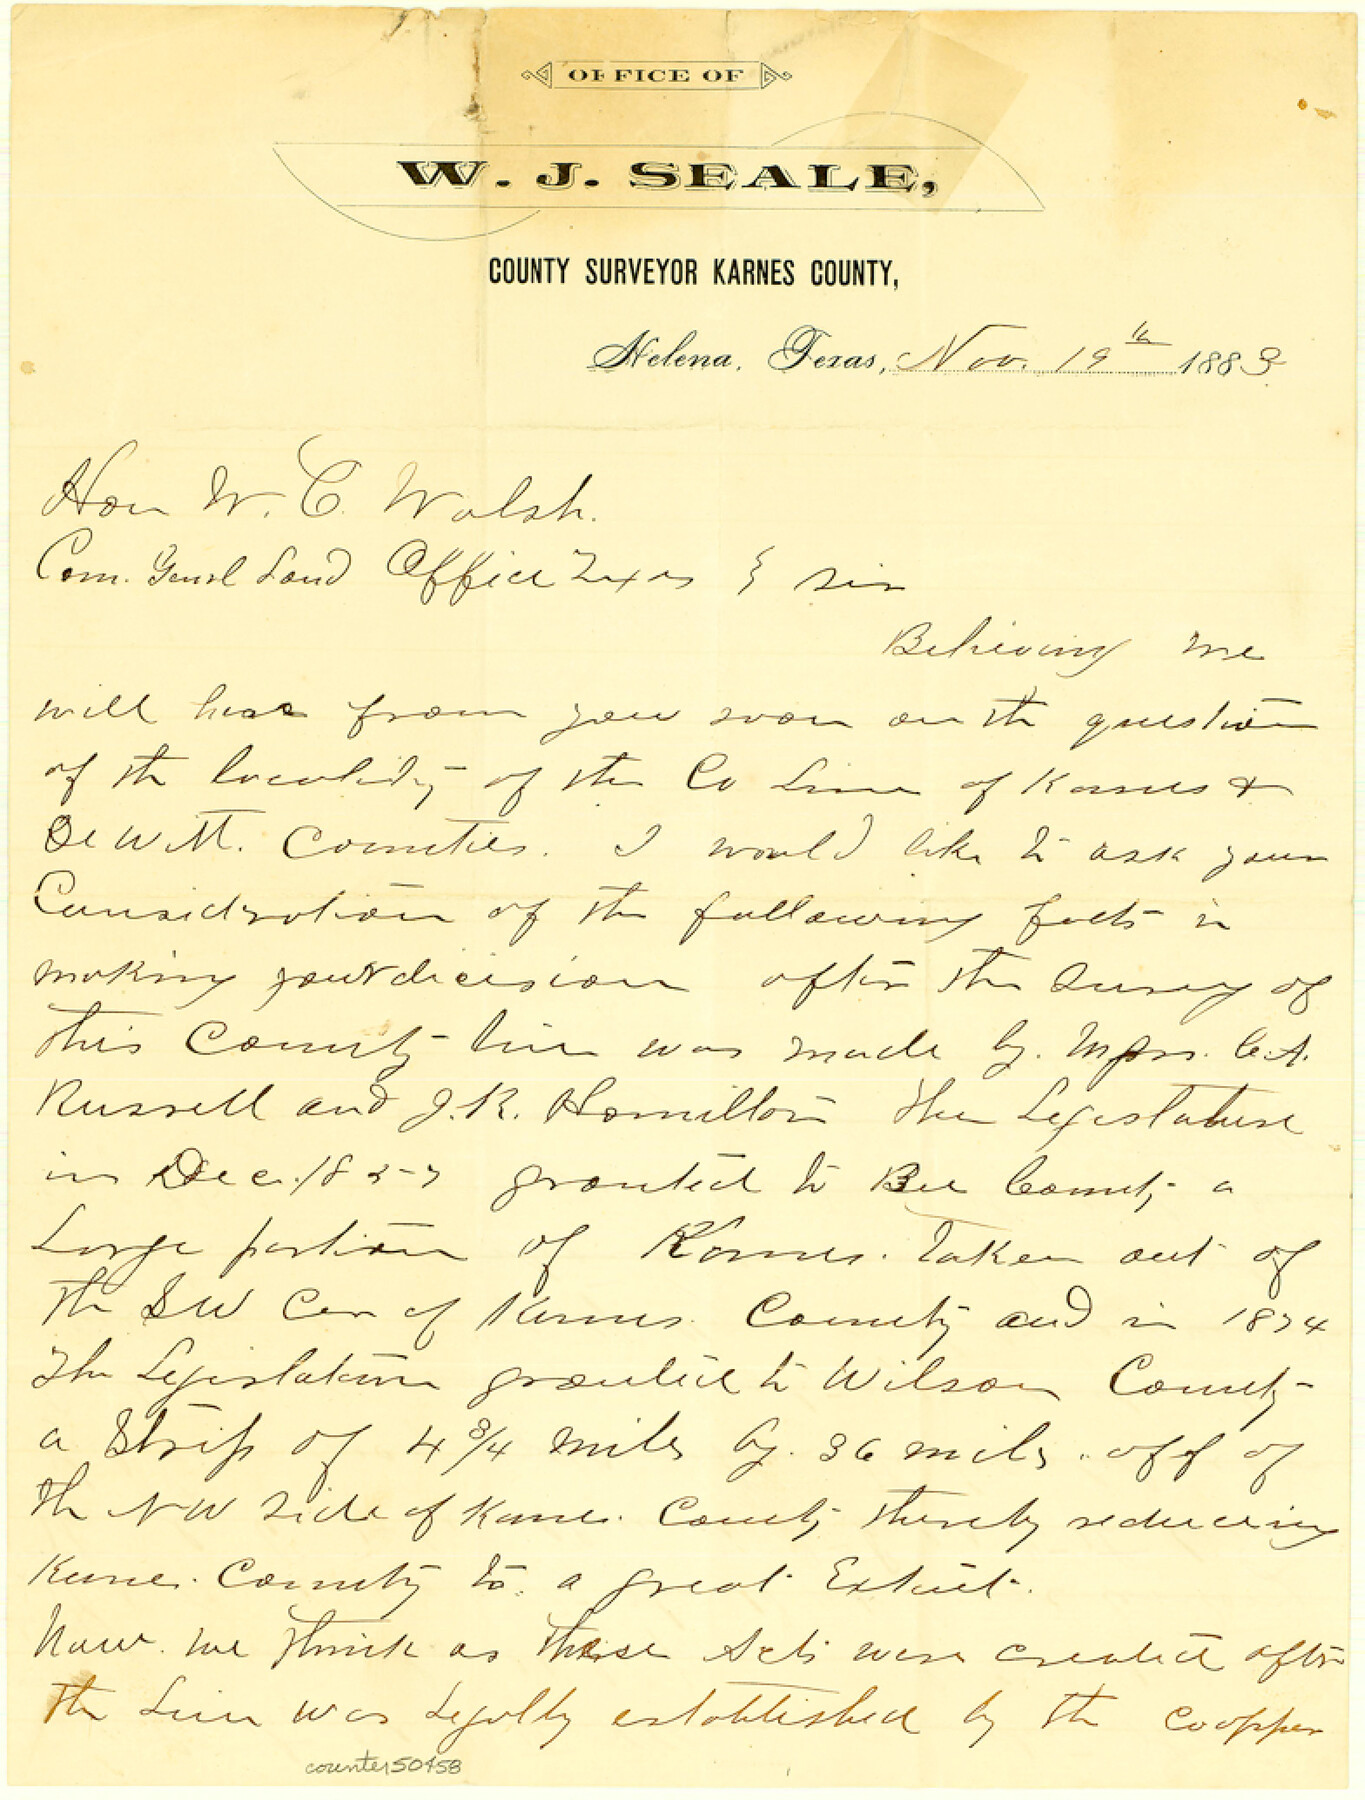 OFFICE OF
W. J. SEALE,
COUNTY SURVEYOR KARNES COUNTY,
Helena, Texas, Nov. 19th 1883
Hon W. C. Walsh.
Com. Genrl Land Office Texas } Sir
Believing we
will hear from you soon on the question
of the locality of the Co Line of Karnes &
DeWitt. Counties. I would like to ask your
Consideration of the following facts in
making your decision after the survey of
this County line was made by. Mssrs. C.A.
Russell and J.R. Hamilton the Legislature
in Dec. 1857 granted to Bee County a
Large portion of Karnes. Taken out of
the SW Cor of Karnes County and in 1874
the Legislature granted to Wilson County
a Strip of 4 3/4 miles by. 36 miles. off of
the NW side of Karnes. County thereby reducing
Karnes. County to. a great Extent.
Now. we think as these Acts were created after
the Line was Legally established by the cooper
counter 50458